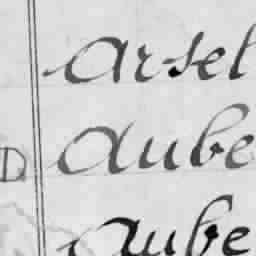 Arsel
D Aube
Aube